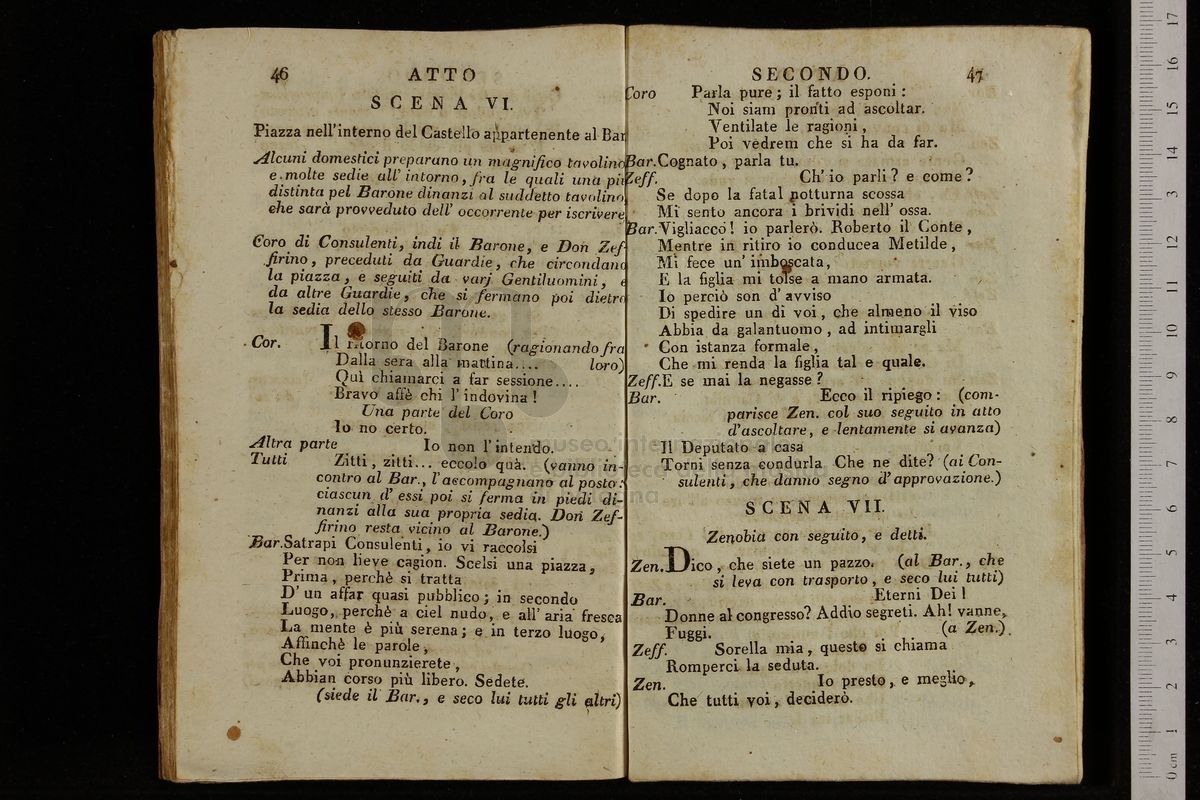 46 ATTO
SCENA VI.
Piazza nell'interno del Castello appartenente al Bar
Alcuni domestici preparano un magnifico tavolino
e molte sedie all' intorno, fra le quali una più
distinta pel Barone dinanzi al suddetto tavolino,
che sarà provveduto dell' occorrente per iscrivere
Coro di Consulenti, indi il Barone, e Don Zef-
firino, preceduti da Guardie, che circondano
la piazza, e seguiti da varj Gentiluomini, e
da altre Guardie, che si fermano poi dietro
la sedia dello stesso Barone.
Cor. Il ritorno del Barone (ragionando fra
Dalla sera alla mattina.... loro)
Quì chiamarci a far sessione....
Bravo affè chi l' indovina!
Una parte del Coro
Io no certo.
Altra parte Io non l'intendo.
Tutti Zitti, zitti... eccolo quà. (vanno in-
contro al Bar., l'accompagnano al posto:
ciascun d' essi poi si ferma in piedi di-
nanzi alla sua propria sedia. Don Zef-
firino resta vicino al Barone.)
Bar. Satrapi Consulenti, io vi raccolsi
Per non lieve cagion. Scelsi una piazza,
Prima, perchè si tratta
D' un affar quasi pubblico; in secondo
Luogo, perchè a ciel nudo, e all' aria fresca
La mente è più serena; e in terzo luogo,
Affinchè le parole,
Che voi pronunzierete,
Abbian corso più libero. Sedete.
(siede il Bar., e seco lui tutti gli altri)
SECONDO. 47
Coro Parla pure; il fatto esponi:
Noi siam pronti ad ascoltar.
Ventilate le ragioni,
Poi vedrem che si ha da far.
Bar. Cognato, parla tu.
Zeff. Ch' io parli? e come?
Se dopo la fatal notturna scossa
Mi sento ancora i brividi nell' ossa.
Bar. Vigliacco! io parlerò. Roberto il Conte,
Mentre in ritiro io conducea Metilde,
Mi fece un' imboscata,
E la figlia mi tolse a mano armata.
Io perciò son d' avviso
Di spedire un di voi, che almeno il viso
Abbia da galantuomo, ad intimargli
Con istanza formale,
Che mi renda la figlia tal e quale.
Zeff. E se mai la negasse?
Bar. Ecco il ripiego: (com-
parisce Zen. col suo seguito in atto
d'ascoltare, e lentamente si avanza)
Il Deputato a casa
Torni senza condurla Che ne dite? (ai Con-
sulenti, che danno segno d'approvazione.)
SCENA VII.
Zenobia con seguito, e detti.
Zen. Dico, che siete un pazzo. (al Bar., che
si leva con trasporto, e seco lui tutti)
Bar. Eterni Dei!
Donne al congresso? Addio segreti. Ah! vanne,
Fuggi. (a Zen.)
Zeff. Sorella mia, questo si chiama
Romperci la seduta.
Zen. Io presto, e meglio,
Che tutti voi, deciderò.